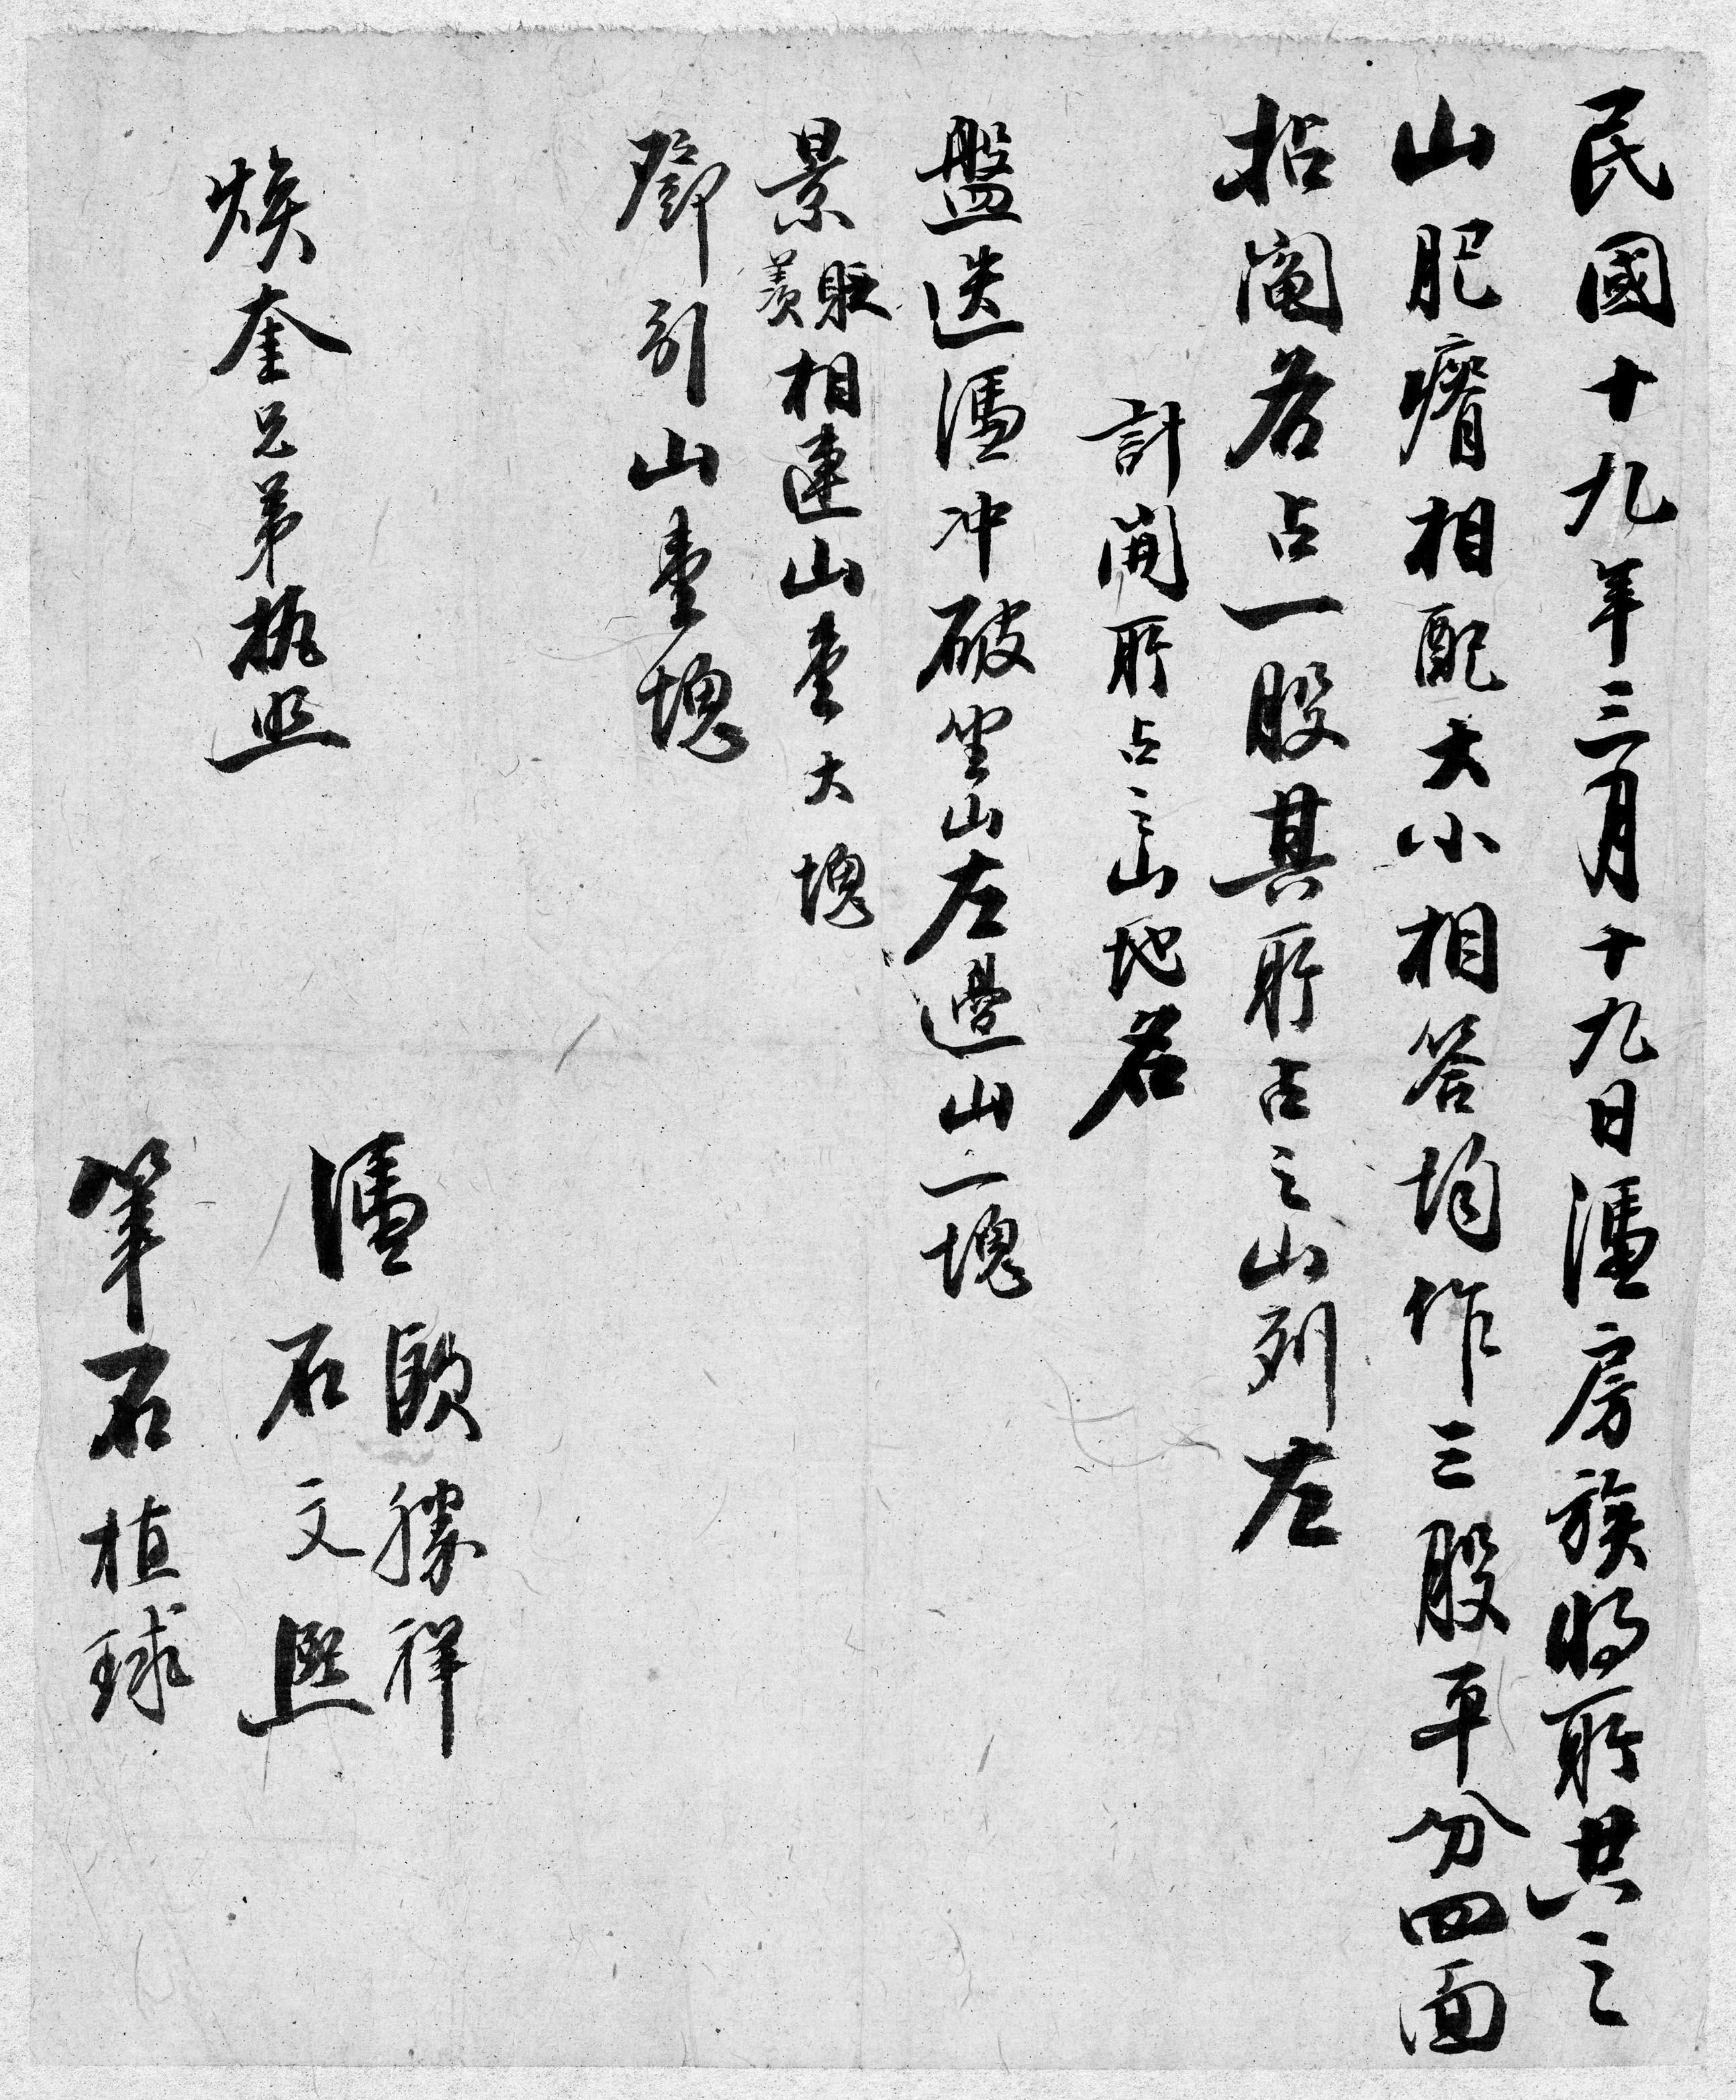 民國十九年三月十九日憑房族將所共之
山肥瘠相配大小相答均作三股平分四面
拈阄各占一股其所占之山列左
計開所占之山地名
盤送憑冲破埜山左邊山一塊
景賢相連山壹大塊
鄧引山壹塊
煥奎兄弟執照
憑 歐勝祥
石文熙
筆石植球